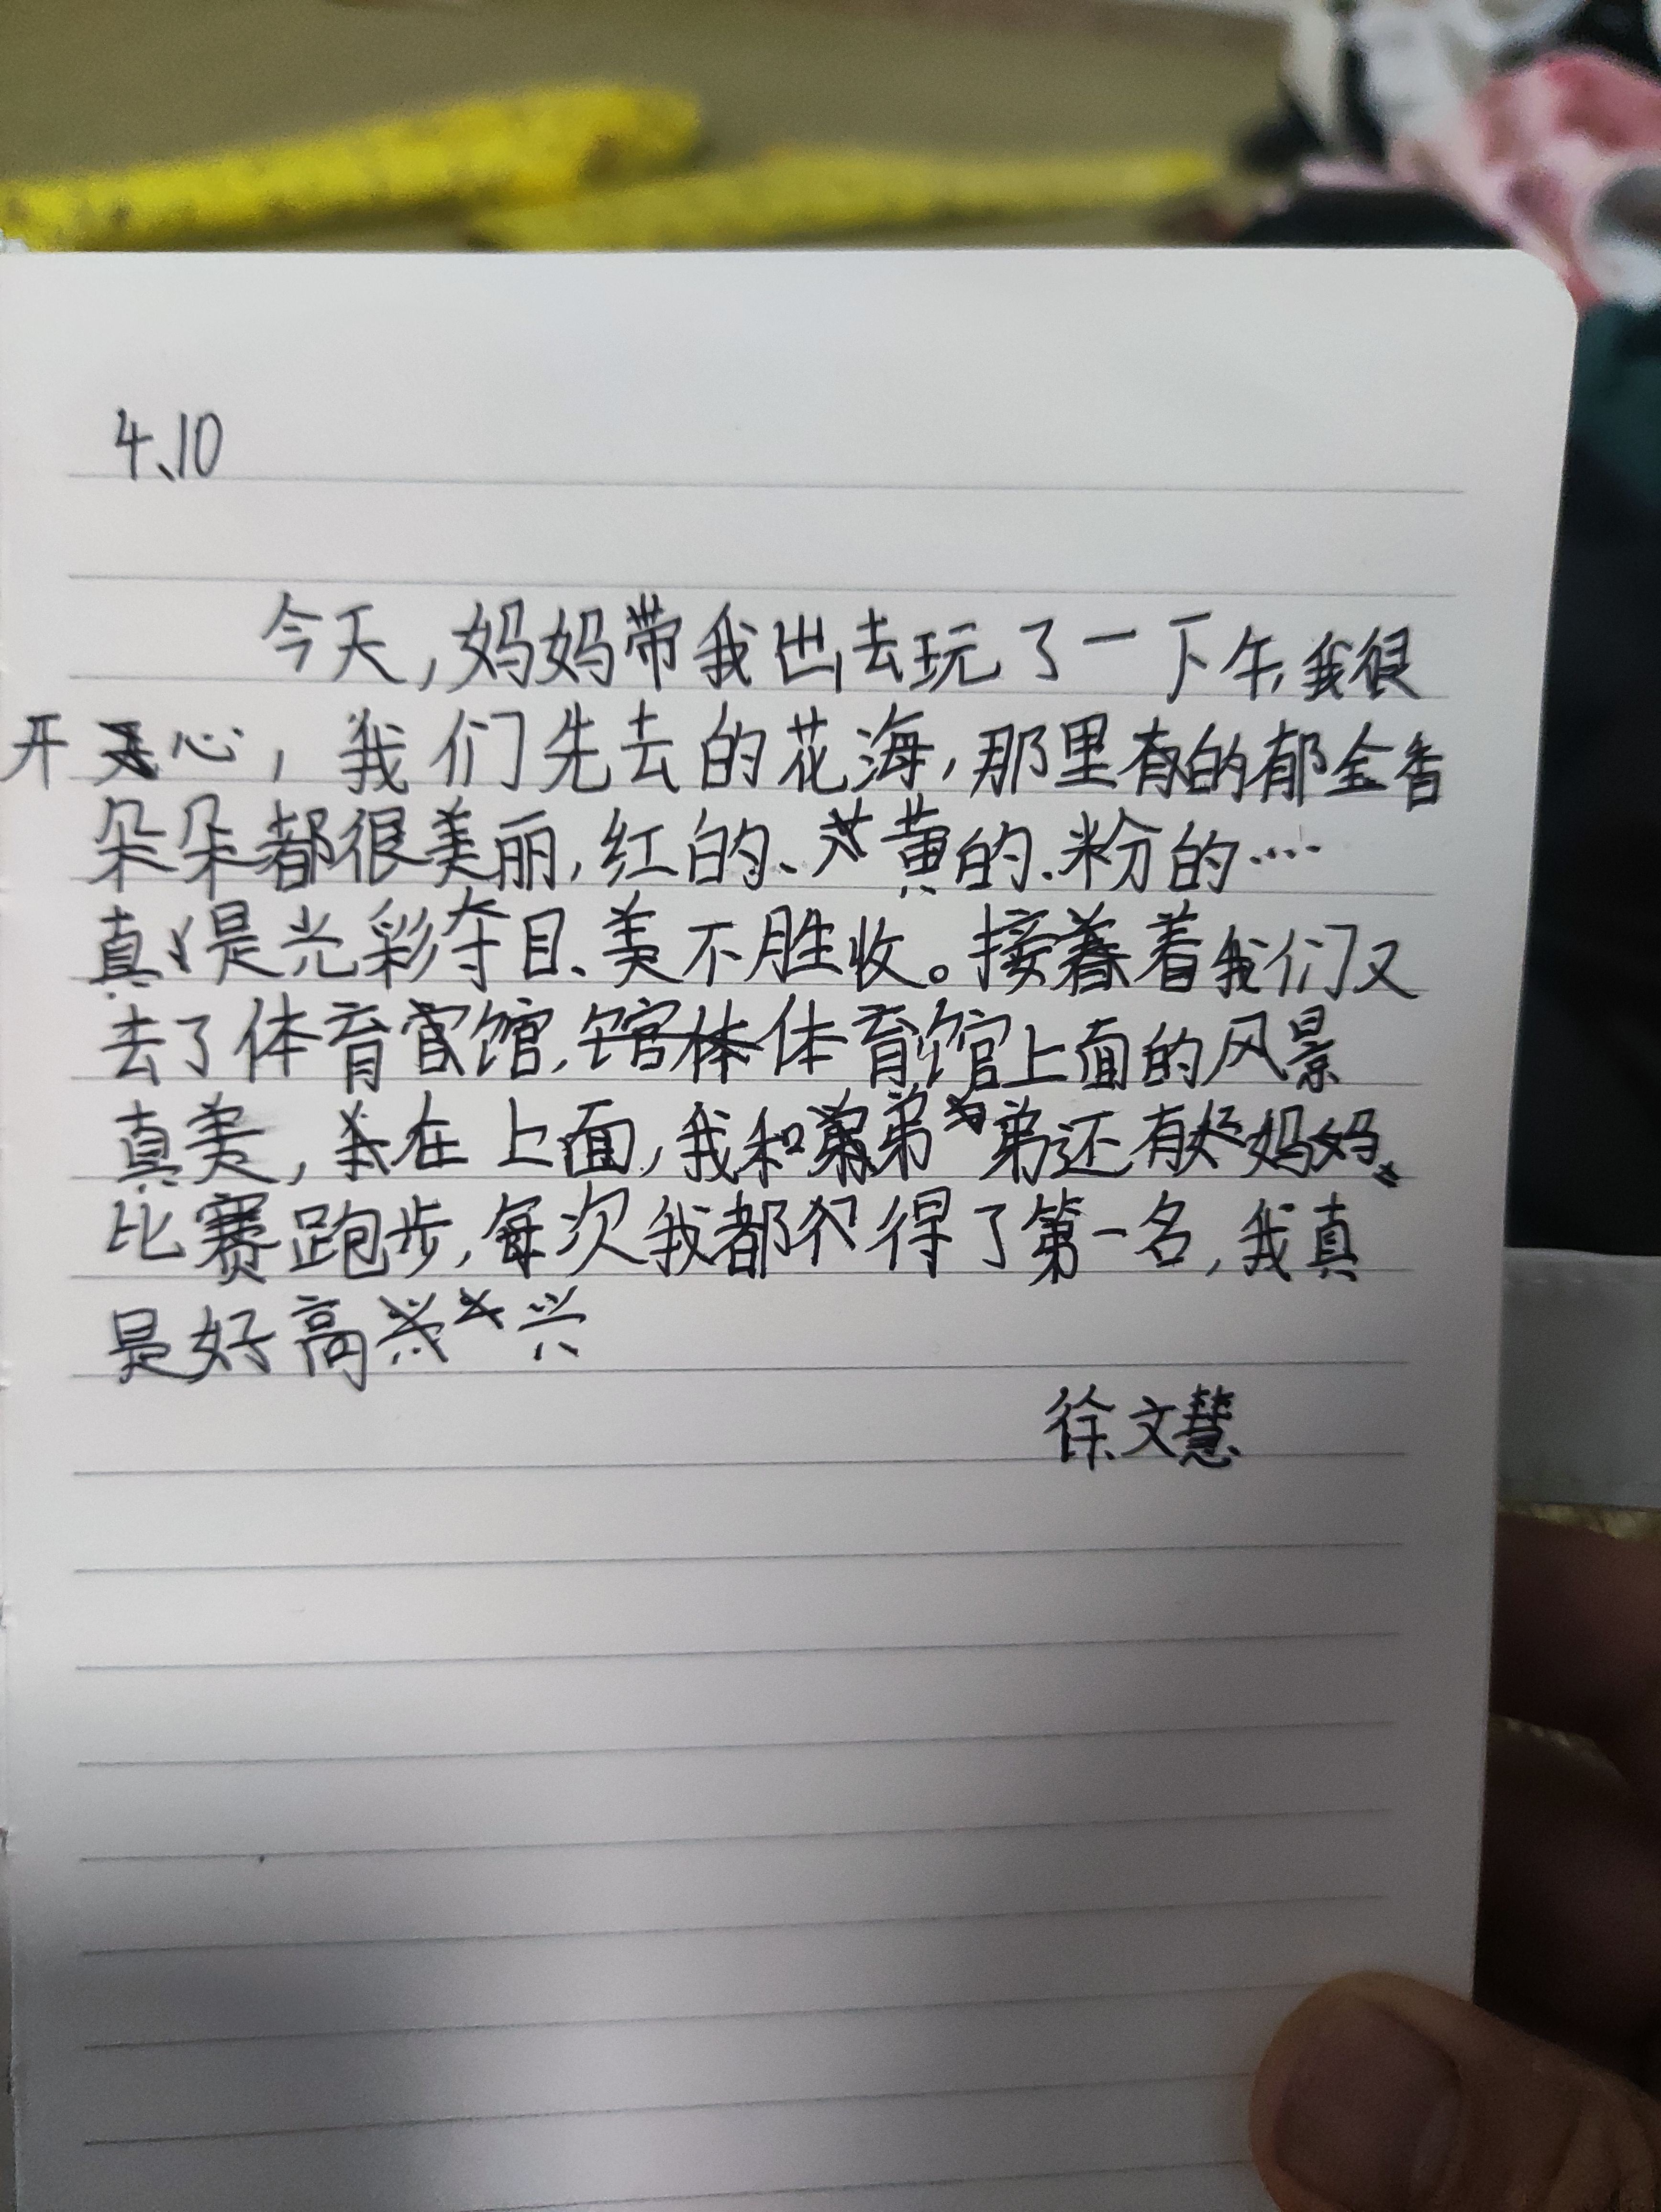 4、10
今天，妈妈带我出去玩了一下午，我很
开心，我们先去的花海，那里有的郁金香
朵朵都很美丽，红的、黄的、粉的…
真是光彩夺目、美不胜收。接着我们又
去了体育馆，体育馆上面的风景
真美，在上面，我和弟弟还有妈妈
比赛跑步，每次我都得了第一名，我真
是好高兴
徐文慧